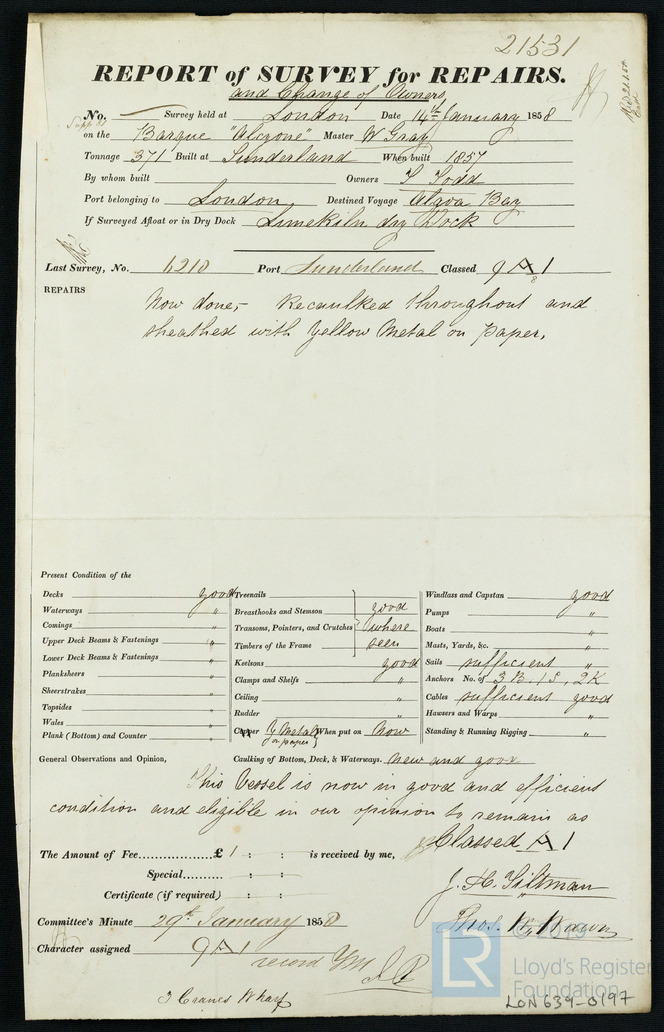 21531
REPORT of SURVEY for REPAIRS.
and Change of Owners,
No. — Survey held at London Date 14th January 1858
on the Barque "Alcyone" Master W Gray
Tonnage 371 Built at Sunderland When built 1857
By whom built Owners T Todd
Port belonging to London, Destined Voyage Algoa Bay
If Surveyed Afloat or in Dry Dock Limekiln dry Dock
Last Survey, No. 6210 Port Sunderland Classed 9 A 1
REPAIRS
Now done,- Recaulked throughout and
sheathed with Yellow Metal on paper,
Present Condition of the
Decks good
Waterways "
Comings "
Upper Deck Beams & Fastenings "
Lower Deck Beams & Fastenings "
Planksheers "
Sheerstrakes "
Topsides "
Wales "
Plank (Bottom) and Counter "
Treenails
Breasthooks and Stemson good
Transoms, Pointers, and Crutches where
Timbers of the Frame seen
Keelsons good
Clamps and Shelfs "
Ceiling "
Rudder "
Copper Y Metal on paper When put on Now
Caulking of Bottom, Deck, & Waterways. new and good
Windlass and Capstan good
Pumps "
Boats "
Masts, Yards, &c. "
Sails sufficient "
Anchors No. of 3 B. 1 S, 2 K
Cables sufficient good
Hawsers and Warps "
Standing & Running Rigging "
General Observations and Opinion,
This Vessel is now in good and efficient
condition and eligible in our opinion to remain as
Classed A 1
The Amount of Fee £ 1 : : is received by me,
Special : :
Certificate (if required) : :
J. H. Tiltman
Committee's Minute 29th January 1858
Thos. W. Wawn
Character assigned 9 A 1
record YM
3 Cranes Wharf
LR
© 2019
Lloyd's Register
Foundation
LON639-0197